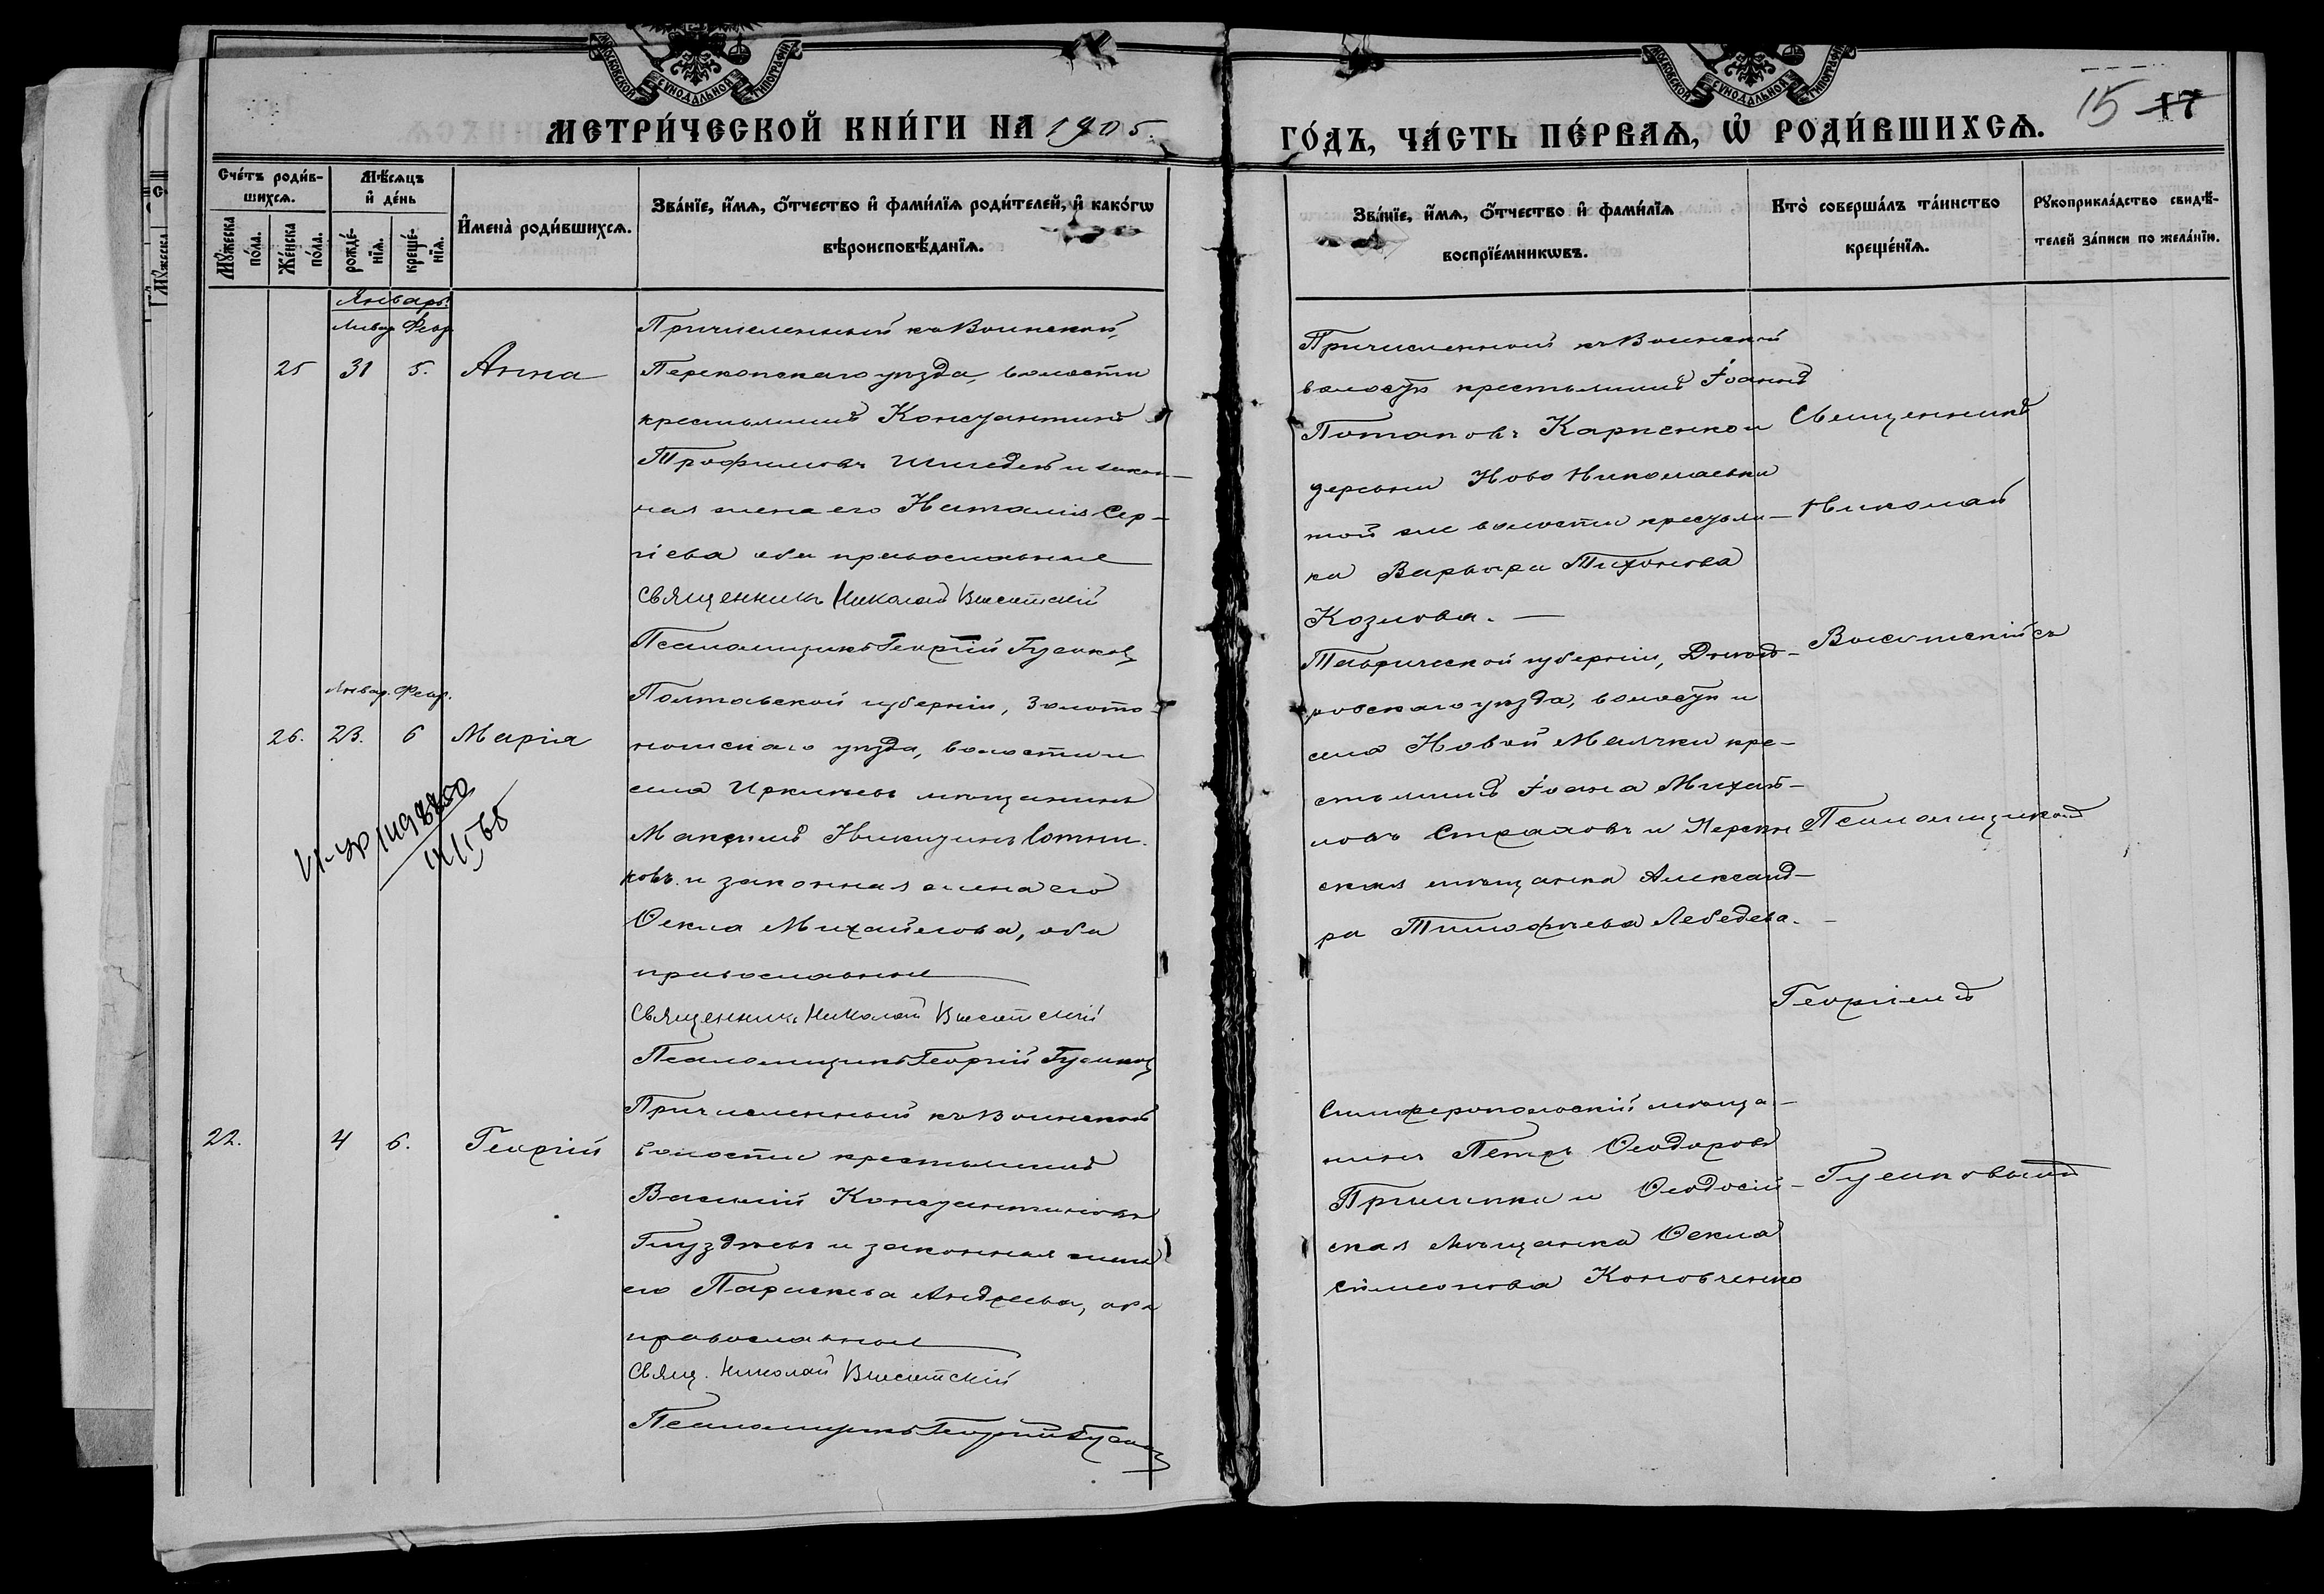 МОСКОВСКОЙ СУНОДАЛЬНОЙ ТИПОГРАФІИ
МОСКОВСКОЙ СУНОДАЛЬНОЙ ТИПОГРАФІИ
МЕТРИ́ЧЕСКОЙ КНИ́ГИ НА 1905.
ГО́ДЪ, ЧА́СТЬ ПЕ́РВАѦ, Ѡ҆ РОДИ́ВШИХСѦ.
15 17
Сче́тъ роди́в-
шихсѧ.
Мꙋ́жеска
по́ла.
Же́нска
по́ла.
Мѣ́сѧцъ
и҆ де́нь
рожде́-
нїѧ.
креще́-
нїѧ.
И҆мена̀ роди́вшихсѧ.
Зва́нїе, и҆́мѧ, ѻ҆́тчество и҆ фами́лїѧ роди́телей, и҆ како́гѡ
вѣроисповѣ́данїѧ.
Зва́нїе, и҆́мѧ, ѻ҆́тчество и҆ фами́лїѧ
воспрїе́мникѡвъ.
Кто̀ соверша́лъ та́инство
креще́нїѧ.
Рꙋкоприкла́дство свидѣ́-
телей за́писи по жела́нїю.
Январь.
Январ Февр
25 31 5. Анна
Причисленный къ Воинской,
Перекопскаго уѣзда, волости
крестьянинъ Константинъ
Трофимовъ и закон-
ная жена его Наталія Сер-
гіева оба православные
Священникъ Николай Высотскій
Псаломщикъ Георгій Гусаков
Причисленный къ Воинской
волости крестьянинъ Іоаннъ
Потаповъ Карпенко и
деревни Ново Николаевки
той же волости крестьян-
ка Варвара Тихонова
Козлова.
Священникъ
Николай
Высотскій съ
Псаломщикомъ
Георгіемъ
Гусаковымъ
Январ. Февр.
26. 23. 6 Марія
Полтавской губерніи, Золото-
ношскаго уѣзда, волости и
села Иркліева мѣщанинъ
Максимъ Никитинъ Сотни-
ковъ и законная жена его
Ѳекла Михайлова, оба
православные
Священникъ Николай Высотскій
Псаломщикъ Георгій Гусаков
Таврической губерніи, Днѣп-
ровскаго уѣзда, волости и
села Новой Маячки кре-
стьянинъ Іоанъ Михай-
ловъ Страховъ и
ская мѣщанка Александ-
ра Тимофѣева Лебедева.
22. 4 6. Георгій
Причисленный къ Воинской
волости крестьянинъ
Василій Константиновъ
и законная жена
его Параскева Андреева, оба
православные
Свящ. Николай Высотскій
Псаломщикъ Георгій Гусаков
Симферопольскій мѣща-
нинъ Петръ Ѳеодоровъ
и Ѳеодосій-
ская мѣщанка Ѳекла
Симеонова Коновченко